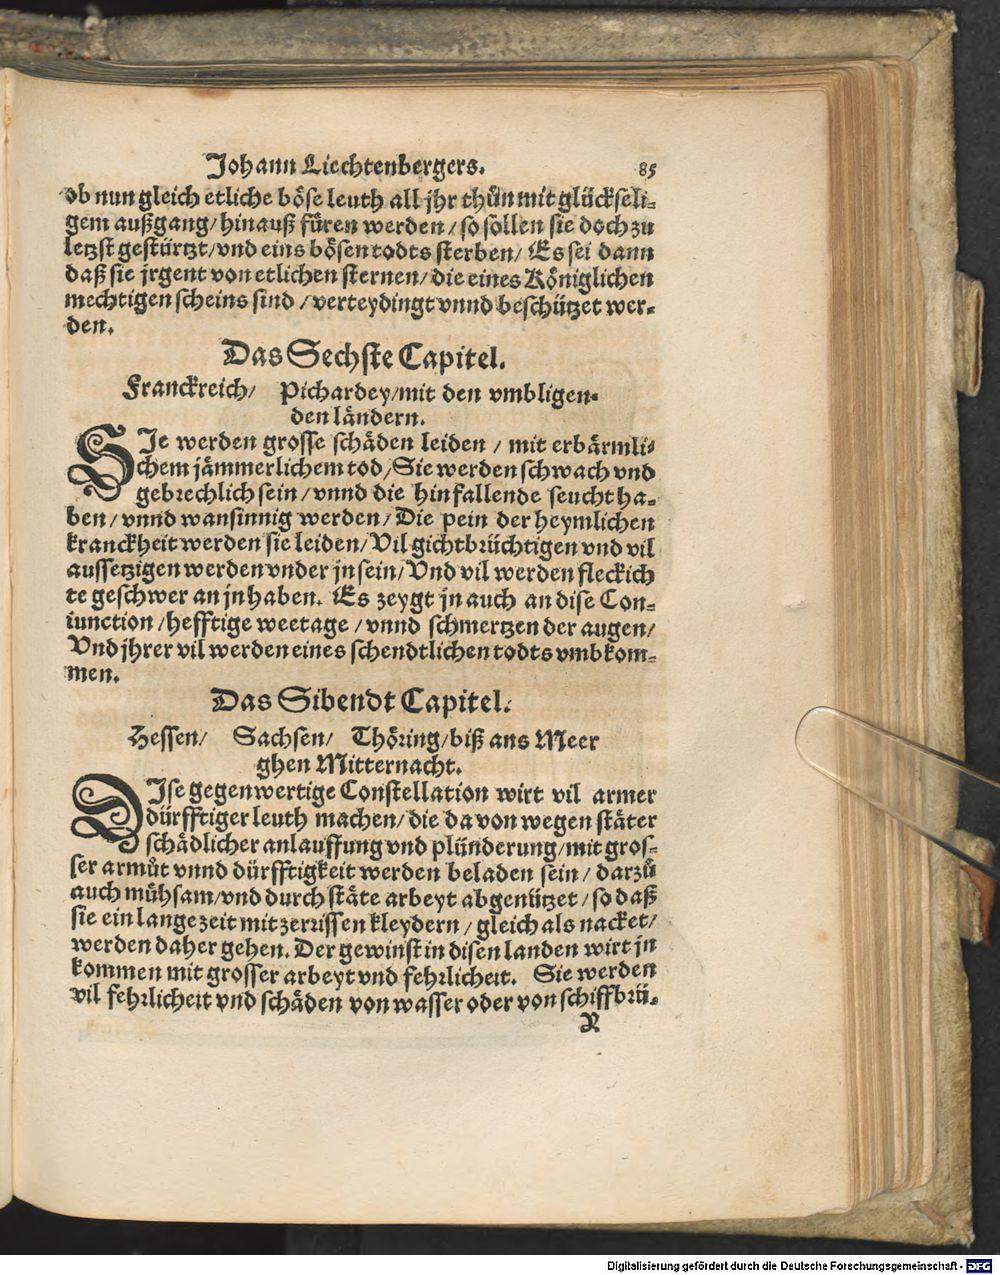 Johann Liechtenbergers. 85
ob nun gleich etliche böse leuth all jhr thůn mit glückseli-
gem außgang/ hinauß füren werden/ so sollen sie doch zu
letzst gestürtzt/ vnd eins bösen todts sterben/ Es sei dann
daß sie jrgent von etlichen sternen/ die eines Königlichen
mechtigen scheins sind/ verteydingt vnnd beschützet wer-
den.
Das Sechste Capitel.
Franckreich/ Pichardey/ mit den vmbligen-
den ländern.
SJe werden grosse schäden leiden/ mit erbärmli-
chem jämmerlichem tod/ Sie werden schwach vnd
gebrechlich sein/ vnnd die hinfallende seucht ha-
ben/ vnnd wansinnig werden/ Die pein der heymlichen
kranckheit werden sie leiden/ Vil gichtbrüchtigen vnd vil
aussetzigen werden vnder jn sein/ Vnd vil werden fleckich
te geschwer an jn haben. Es zeygt jn auch an dise Con-
iunction/ hefftige weetage/ vnnd schmertzen der augen/
Vnd jhrer vil werden eines schendtlichen todts vmbkom-
men.
Das Sibendt Capitel.
Hessen/ Sachsen/ Thöring/ biß ans Meer
ghen Mitternacht.
DJse gegenwertige Constellation wirt vil armer
dürfftiger leuth machen/ die da von wegen stäter
schädlicher anlauffung vnd plünderung/ mit gros-
ser armůt vnnd dürfftigkeit werden beladen sein/ darzů
auch mühsam/ vnd durch stäte arbeyt abgenützet/ so daß
sie ein lange zeit mit zerrissen kleydern/ gleich als nacket/
werden daher gehen. Der gewinst in disen landen wirt jn
kommen mit grosser arbeyt vnd fehrlicheit. Sie werden
vil fehrlicheit vnd schäden von wasser oder von schiffbrü-
R
Digitalisierung gefördert durch die Deutsche Forschungsgemeinschaft - DFG